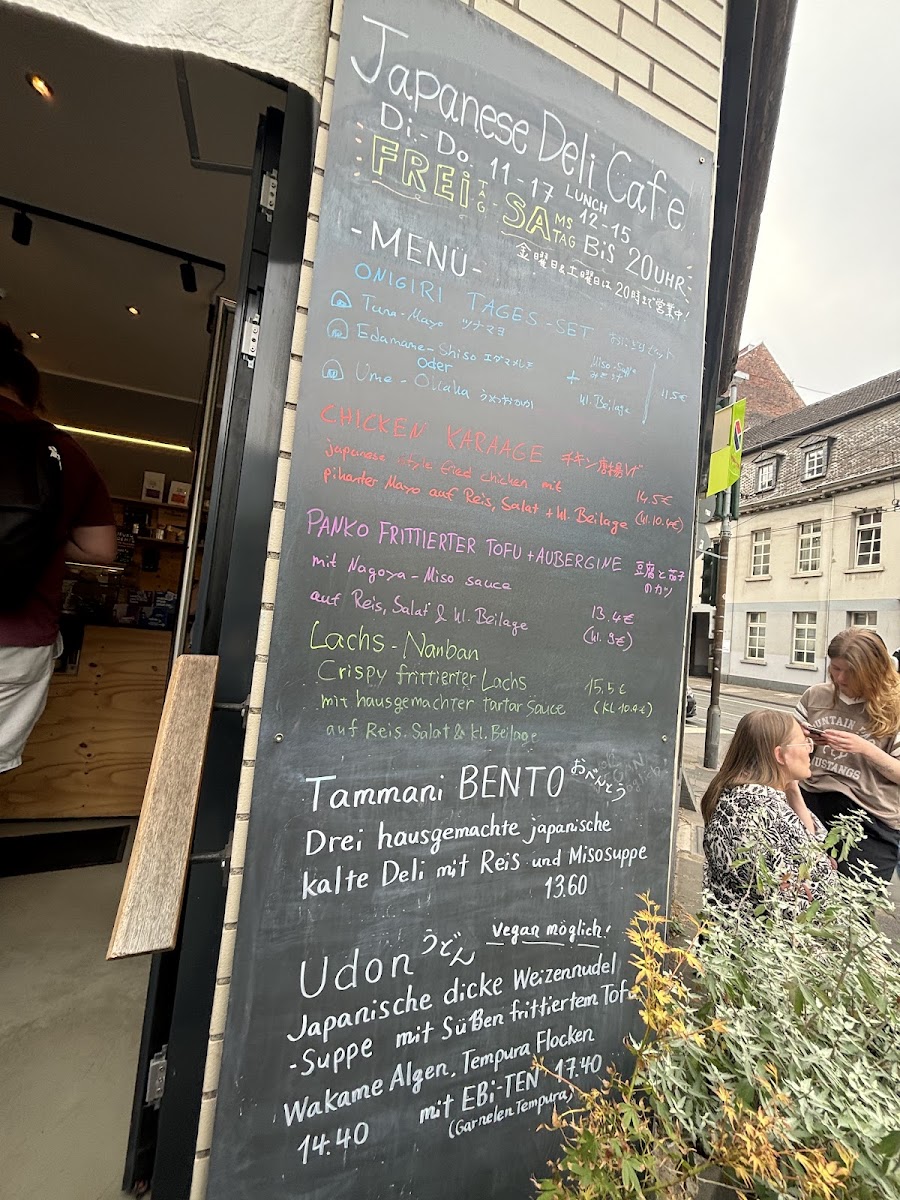 Japanese Deli Cafe
Di.-Do. 11-17 LUNCH 12-15
FREiTAG-SAMSTAG BiS 20UHR
金曜日&土曜日は20時まで営業中!
-MENÜ-
ONIGIRI TAGES-SET おにぎりセット
Tuna-Mayo ツナマヨ
Edamame-Shiso エダマメしそ
oder
Ume-Okaka うめおかか
+ Miso-Suppe
みそしる
kl. Beilage
11.5€
CHICKEN KARAAGE チキン唐揚げ
japanese style fried chicken mit
pikanter Mayo auf Reis, Salat + kl. Beilage
14.5€
(kl. 10.4€)
PANKO FRITTIERTER TOFU + AUBERGINE 豆腐と茄子
のカツ
mit Nagoya-Miso sauce
auf Reis, Salat & kl. Beilage
13.4€
(kl. 9€)
Lachs-Nanban
Crispy frittierter Lachs
mit hausgemachter tartar sauce
auf Reis. Salat & kl. Beilage
15,5€
(kl. 10.4€)
Tammani BENTO おべんとう
Drei hausgemachte japanische
kalte Deli mit Reis und Misosuppe
13.60
Udon うどん vegan möglich!
Japanische dicke Weizennudel
-Suppe mit Süßen frittiertem Tofu
Wakame Algen, Tempura Flocken
14.40 mit EBi-TEN 17.40
(Garnelen Tempura)
MOUNTAIN
MUSTANGS